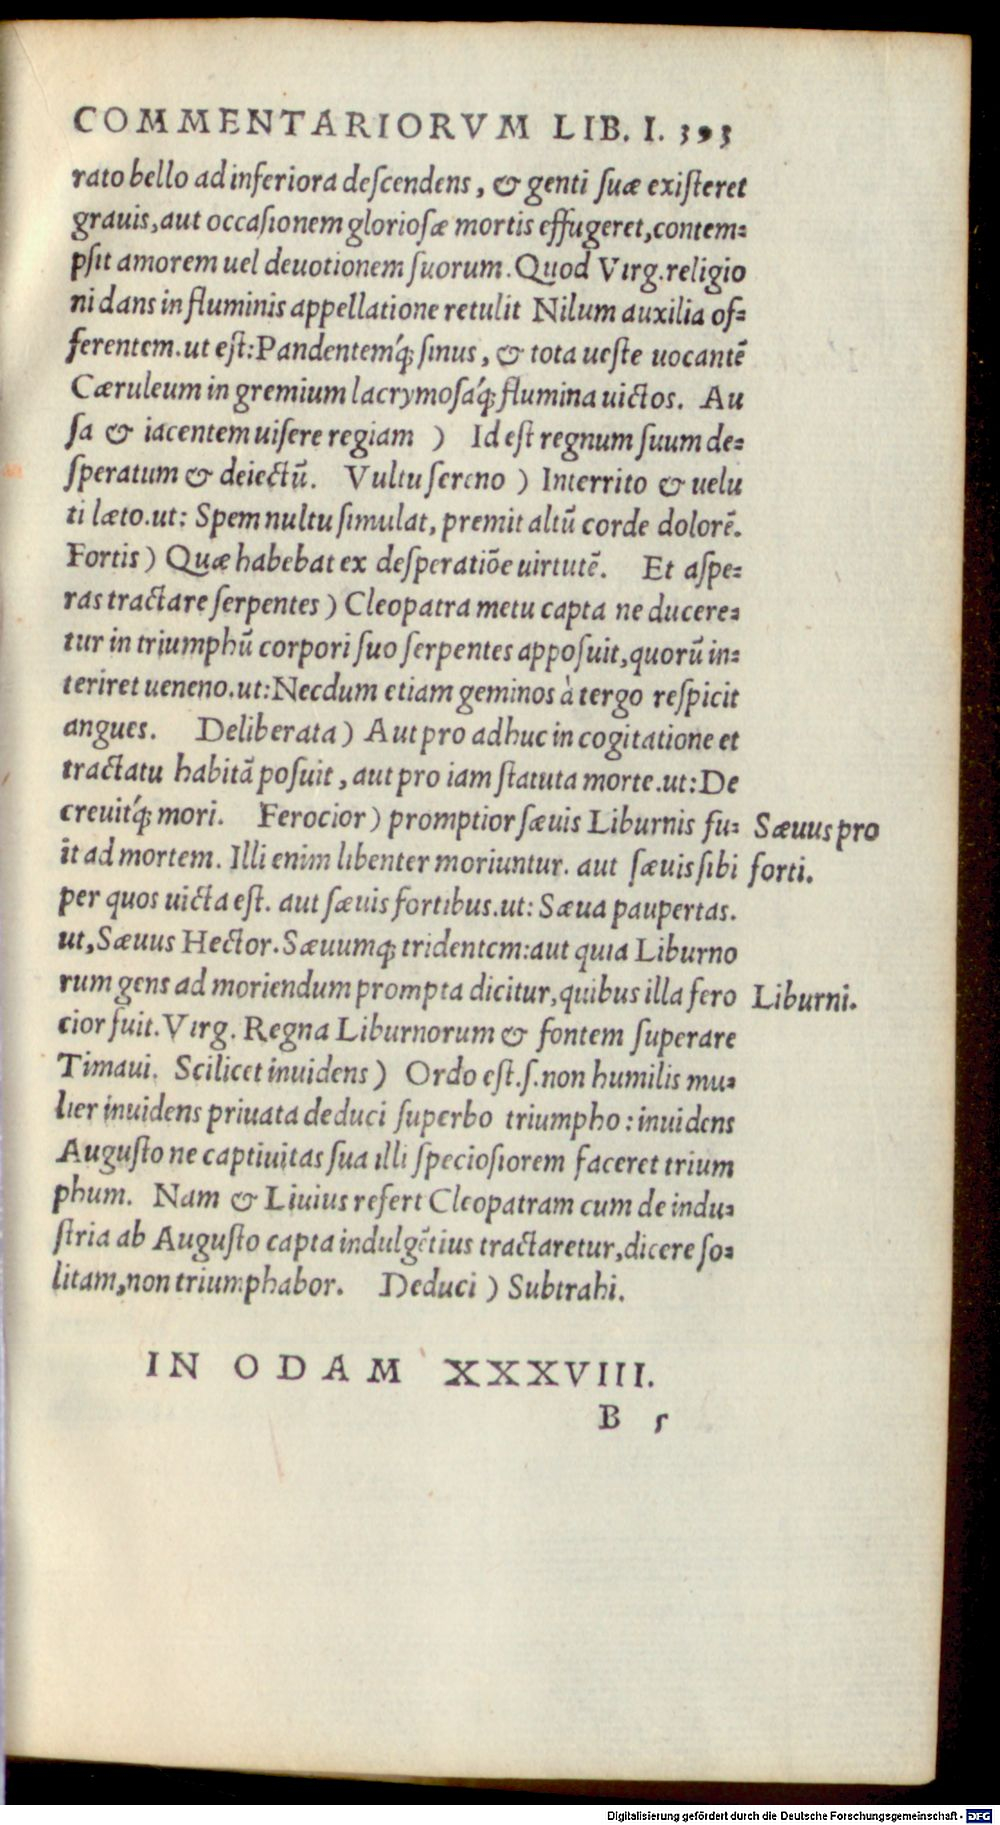 COMMENTARIORVM LIB. I. 393
rato bello ad inferiora deſcendens, & genti ſuæ exiſteret
grauis, aut occaſionem glorioſæ mortis effugeret, contem=
pſit amorem uel deuotionem ſuorum. Quod Virg. religio
ni dans in fluminis appellatione retulit Nilum auxilia of=
ferentem. ut eſt: Pandentemq́; ſinus, & tota ueſte uocantē
Cæruleum in gremium lacrymoſaq́; flumina uictos. Au
ſa & iacentem uiſere regiam ) Id eſt regnum ſuum de=
ſperatum & deiectū. Vultu ſereno ) Interrito & uelu
ti læto. ut: Spem nultu ſimulat, premit altū corde dolorē.
Fortis ) Quæ habebat ex deſperatiōe uirtutē. Et aſpe=
ras tractare ſerpentes ) Cleopatra metu capta ne ducere=
tur in triumphū corpori ſuo ſerpentes appoſuit, quorū in=
teriret ueneno. ut: Necdum etiam geminos à tergo reſpicit
angues. Deliberata ) Aut pro adhuc in cogitatione et
tractatu habitā poſuit, aut pro iam ſtatuta morte. ut: De
creuitq́; mori. Ferocior ) promptior ſæuis Liburnis fu=
Sæuus pro
it ad mortem. Illi enim libenter moriuntur. aut ſæuis ſibi
forti.
per quos uicta eſt. aut ſæuis fortibus. ut: Sæua paupertas.
ut, Sæuus Hector. Sæuumq; tridentem: aut quia Liburno
rum gens ad moriendum prompta dicitur, quibus illa fero
Liburni.
cior fuit. Virg. Regna Liburnorum & fontem ſuperare
Timaui. Scilicet inuidens ) Ordo eſt. ſ. non humilis mu=
lier inuidens priuata deduci ſuperbo triumpho: inuidens
Auguſto ne captiuitas ſua illi ſpecioſiorem faceret trium
phum. Nam & Liuius refert Cleopatram cum de indu=
ſtria ab Auguſto capta indulgētius tractaretur, dicere ſo=
litam, non triumphabor. Deduci ) Subtrahi.
IN ODAM XXXVIII.
B 5
Digitalisierung gefördert durch die Deutsche Forschungsgemeinschaft - DFG